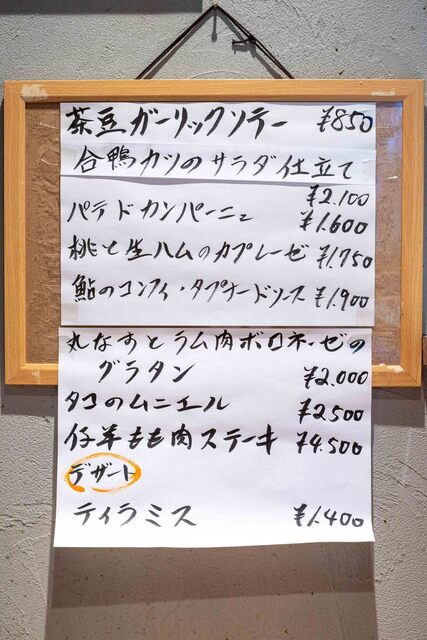 茶豆ガーリックソテー ¥850
合鴨カツのサラダ仕立て
¥2.100
パテドカンパーニュ ¥1.600
桃と生ハムのカプレーゼ ¥1.750
鮎のコンフィ・タプナードソース ¥1.900
丸なすとラム肉ボロネーゼの
グラタン ¥2.000
タコのムニエル ¥2.500
仔羊もも肉ステーキ ¥4.500
デザート
ティラミス ¥1.400